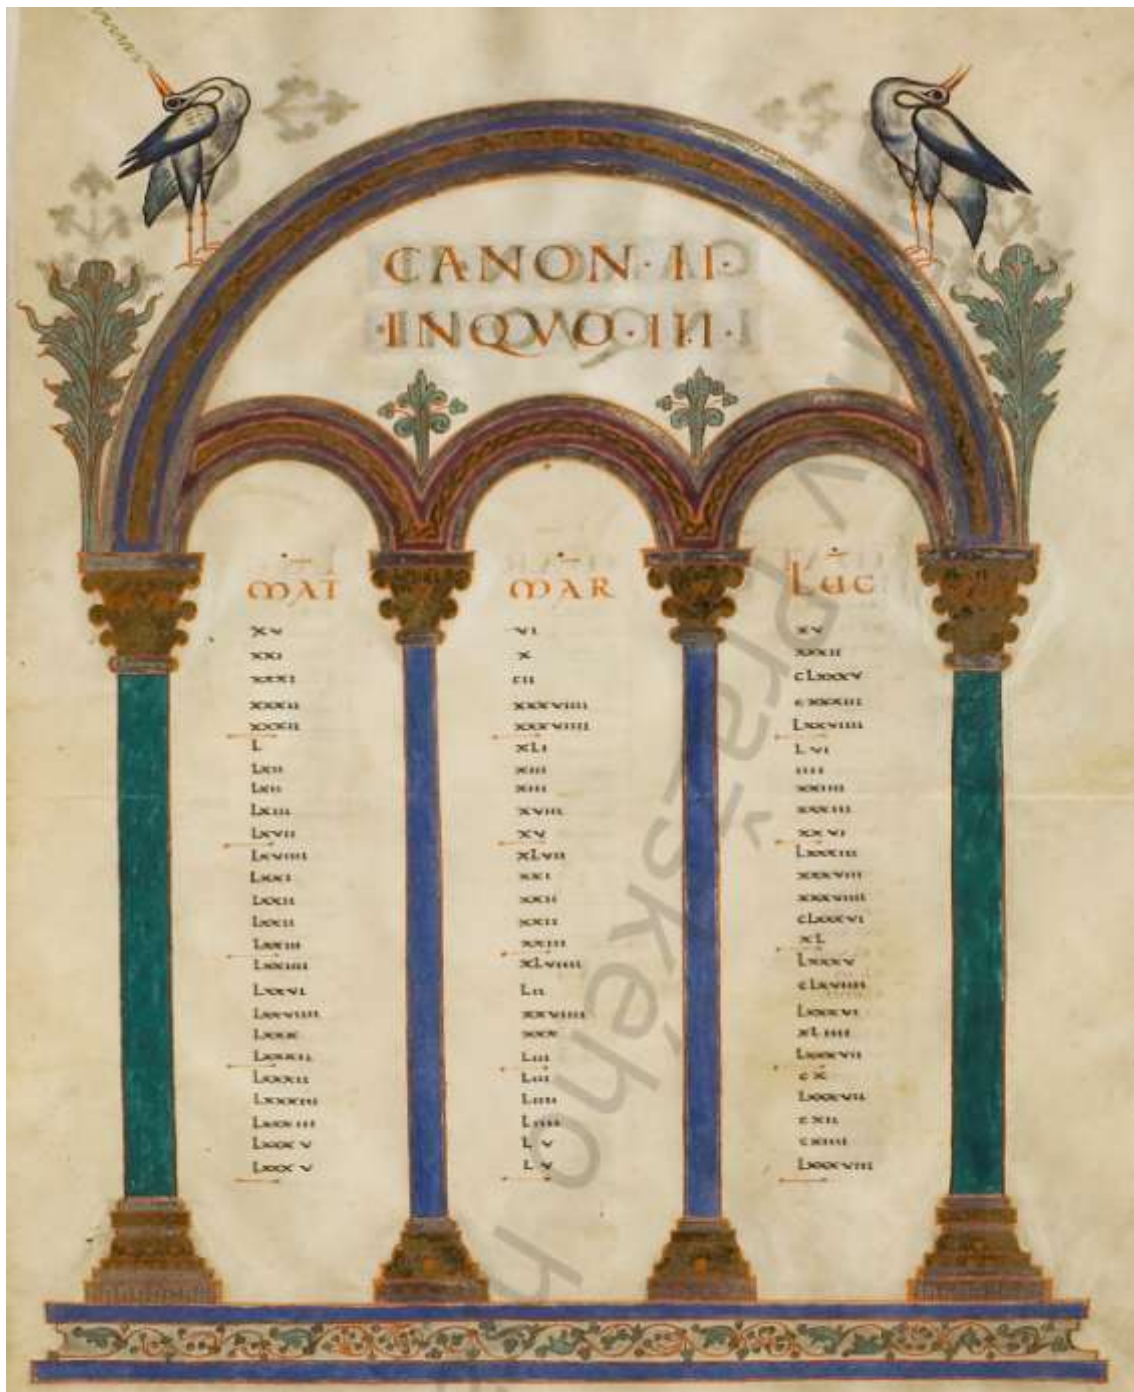 CANON·II·
·INQVO·III·
MAT MAR LUC
xv vi xv
xxi x xxxii
xxxi cii cLxxxv
xxxii xxxviiii cxxxiii
xxxii xxxviiii Lxxviiii
L xLi Lvi
Lxii xiii iiii
Lxii xiii xxiiii
Lxiii xviii xxxiii
Lxvii xv xxvi
Lxviiii xLvii Lxxxiii
Lxxi xxi xxxviii
Lxxii xxii xxxviiii
Lxxii xxii cLxxxvi
Lxxiii xxiii xL
Lxxiiii xLviiii Lxxxv
Lxxvi Lii cLxviiii
Lxxviiii xxviiii Lxxxvi
Lxxx xxx xLiiii
Lxxxii Liii Lxxxvii
Lxxxii Liii cx
Lxxxiii Liiii Lxxxvii
Lxxxiii Liiii cxii
Lxxxv Lv cxiiii
Lxxxv Lv Lxxxviii
v pražského h